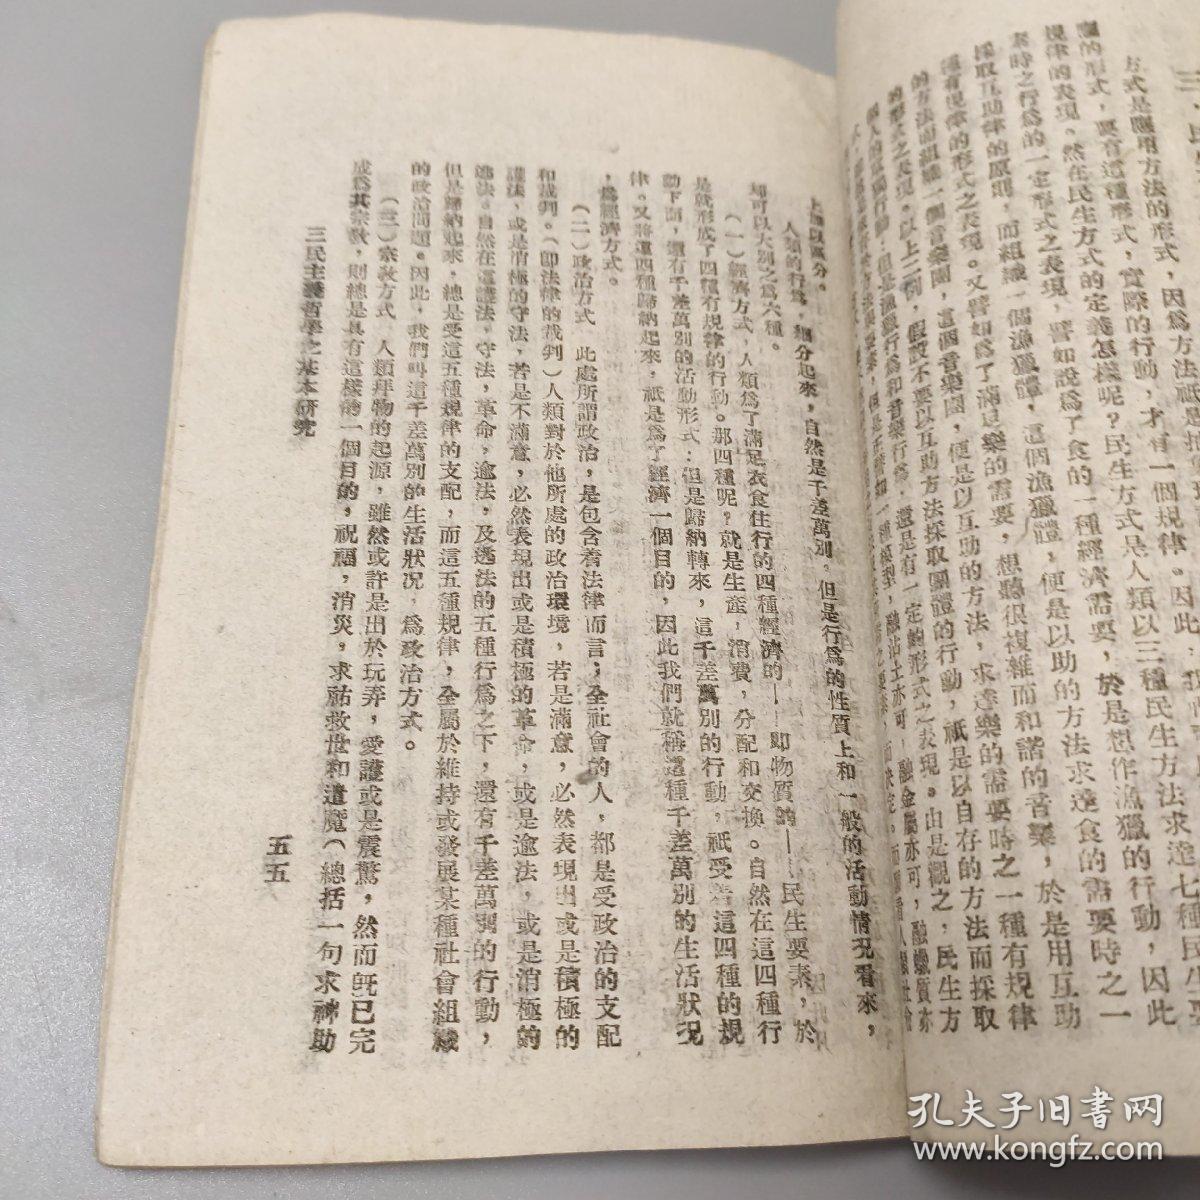 方式是應用方法的形式，因爲方法祇是採
的形式，要有這種形式，實際的行動，才有一個規律。因此
規律的表現。然在民生方式的定義怎樣呢？民生方式是人類以三種民生方法求達七種民生要
素時之行爲的一定形式之表現，譬如說爲了食的一種經濟需要，於是想作漁獵的行動，因此
採取互助律的原則，而組織一個漁獵體，這個漁獵體，便是以助的方法求達食的需要時之一
種有規律的形式之表現。又譬如爲了滿足樂的需要，想聽很複雜而和諧的音樂，於是用互助
的方法而組織一個音樂團，這個音樂團，便是以互助的方法，求達樂的需要時之一種有規律
的形式之表現。以上二例，假設不要以互助方法採取團體的行動，祇是以自存的方法而採取
個人的單獨行動，但是漁獵行爲和音樂行爲，還是有一定的形式之表現。由是觀之，民生方
上加以區分。
人類的行爲，細分起來，自然是千差萬別，但是行爲的性質上和一般的活動情况看來，
却可以大別之爲六種。
（一）經濟方式，人類爲了滿足衣食住行的四種經濟的——即物質的——民生要素，於
是就形成了四種有規律的行動。那四種呢？就是生產，消費，分配和交換。自然在這四種行
動下面，還有千差萬別的活動形式；但是歸納轉來，這千差萬別的行動，祇受着這四種的規
律。又將這四種歸納起來，祇是爲了經濟一個目的，因此我們就稱這種千差萬別的生活狀况
，爲經濟方式。
（二）政治方式　此處所謂政治，是包含着法律而言；全社會的人，都是受政治的支配
和裁判。（即法律的裁判）人類對於他所處的政治環境，若是滿意，必然表現出或是積極的
護法，或是消極的守法，若是不滿意，必然表現出或是積極的革命，或是逾法，或是消極的
逃法。自然在這護法，守法，革命，逾法，及逃法的五種行爲之下，還有千差萬別的行動，
但是歸納起來，總是受這五種規律的支配，而這五種規律，全屬於維持或發展某種社會組織
的政治問題。因此，我們叫這千差萬別的生活狀况，爲政治方式。
（三）宗教方式，人類拜物的起源，雖然或許是出於玩弄，愛護或是震驚，然而既已完
成爲其宗教，則總是具有這樣的一個目的，祝福，消災，求祜救世和遣魔（總括一句求神助
三民主義哲學之基本研究
五五
孔夫子旧书网
www.kongfz.com